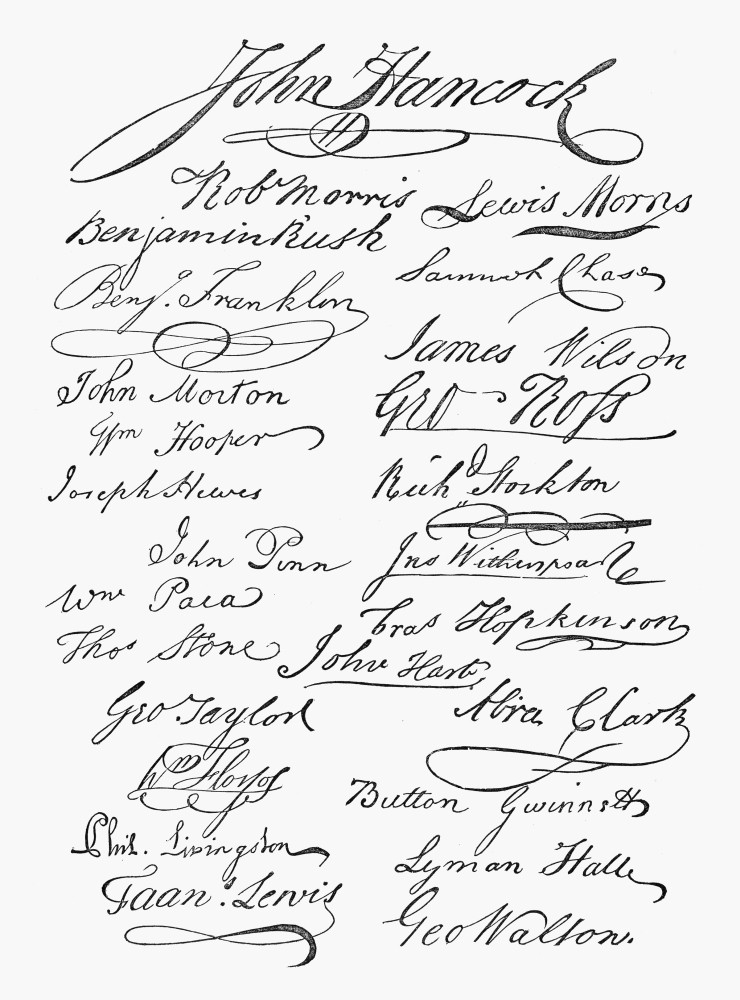 John Hancock
Rob Morris
Lewis Morris
Benjamin Rush
Benj. Franklin
Samuel Chase
James Wilson
John Morton
Geo Ross
Wm Hooper
Joseph Hewes
Rich Stockton
John Penn
Jno Witherspoon
Wm Paca
Fras Hopkinson
Thos Stone
John Hart
Geo Taylor
Abra Clark
Wm Floyd
Button Gwinnett
Phil. Livingston
Lyman Hall
Fran.s Lewis
Geo Walton.